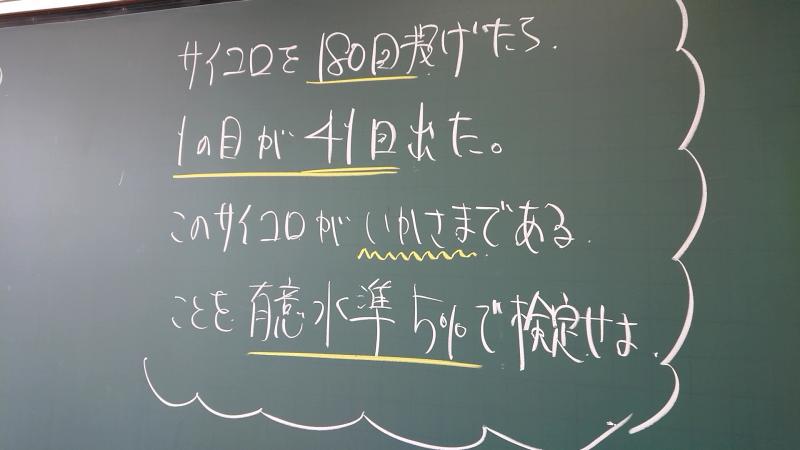 サイコロを180回投げたら.
1の目が41回出た。
このサイコロがいかさまである.
ことを有意水準5%で検定せよ.